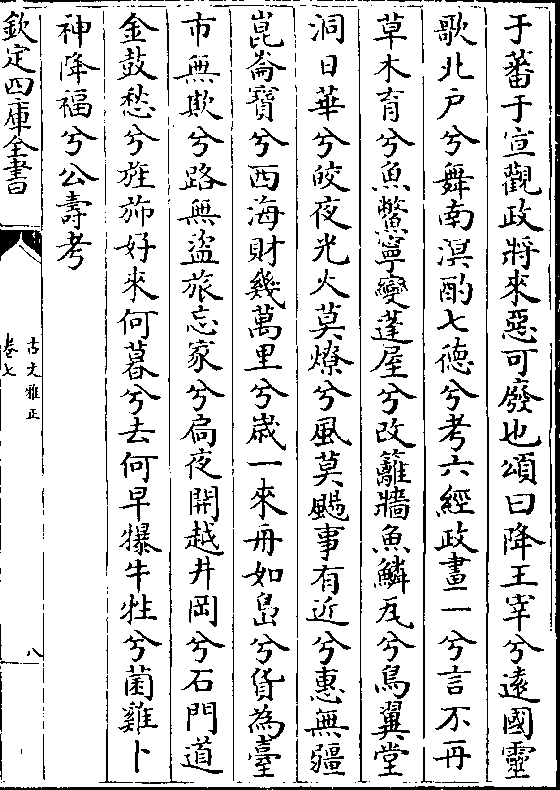 于蕃于宣觀政將來惡可廢也頌曰降王宰兮遠國靈
歌北户兮舞南溟酌七德兮考六經政畫一兮言不再
草木育兮魚鱉寧變蓬屋兮改籬牆魚鱗瓦兮鳥翼堂
洞日華兮皎夜光火莫燎兮風莫颺事有近兮惠無疆
崑崙寶兮西海財幾萬里兮歲一來舟如島兮貨為臺
市無欺兮路無盜旅忘家兮扃夜開越井岡兮石門道
金鼓愁兮旌旆好來何暮兮去何早犦牛牲兮菌雞卜
神降福兮公壽考
欽定四庫全書
古文雅正
卷七
八